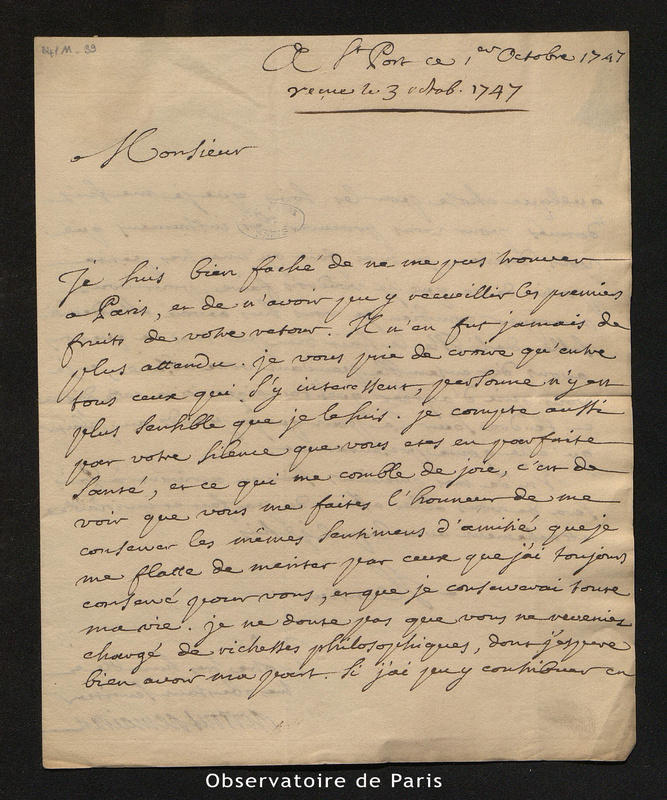 B4/M-39
A St Port ce 1er Octobre 1747
reçue le 3 octob. 1747
Monsieur
Je suis bien faché de ne me pas trouver
a Paris, et de n'avoir pu y recueillir les premiers
fruits de votre retour. Il n'en fut jamais de
plus attendu. je vous prie de croire qu'entre
tous ceux qui s'y interessent, personne n'y est
plus sensible que je le suis. je compte aussi
par votre silence que vous etes en parfaite
santé, et ce qui me comble de joie, c'est de
voir que vous me faites l'honneur de me
conserver les mêmes sentimens d'amitié que je
me flatte de meriter par ceux que j'ai toujours
conservé pour vous, et que je conserverai toute
ma vie. je ne doute pas que vous ne reveniez
chargé de richesses philosophiques, dont j'espere
bien avoir ma part. Si j'ai pu y contribuer en
Observatoire de Paris